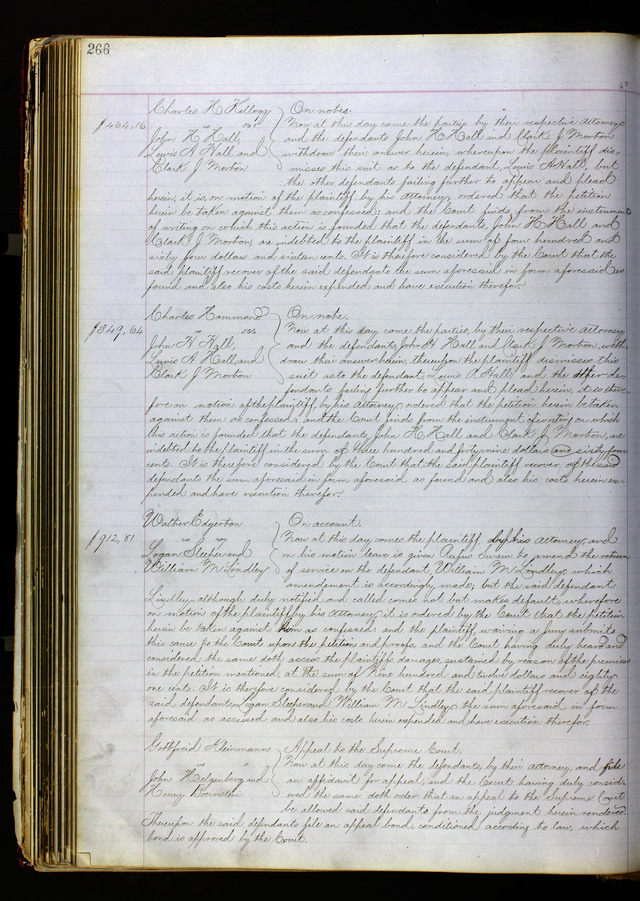 266
Charles H Kellogg On notes.
$464.16 vs Now at this day come the parties by their respective Attorneys
John H Hall, and the defendants John H Hall and Clark J Morton
Lewis A Hall and withdraw their answer herein, whereupon the plaintiff dis-
Clark J Morton misses this suit as to the defendant, Lewis A Hall, but
the other defendants failing further to appear and plead
herein, it is, on motion of the plaintiff, by his Attorney ordered that the petition
herein be taken against them as confessed; and the Court finds from the instrument
of writing on which this action is founded that the defendants, John H Hall and
Clark J Morton, as indebted to the plaintiff in the sum of four hundred and
sixty four dollars and sixteen cents. It is therefore considered by the Court that the
said plaintiff recover of the said defendants the sum aforesaid in form aforesaid as
found and also his costs herein expended and have execution therefor.
Charles Hammond On note.
$349.64 vs Now at this day come the parties, by their respective Attorney
John H Hall, and the defendants, John H Hall and Clark J Morton, with
Lewis A Hall and draw their answer herein, thereupon the plaintiff dismisses this
Clark J Morton suit as to the defendant, Lewis A Hall, and the other de-
fendants failing further to appear and plead herein, it is there
fore on motion of the plaintiff, by his Attorney ordered that the petition herein be taken
against them as confessed; and the Court finds from the instrument of writing on which
this action is founded that the defendants, John H Hall and Clark J Morton, are
indebted to the plaintiff in the sum of three hundred and forty nine dollars and sixty four
cents. It is therefore considered by the Court that the said plaintiff recover of the said
defendants the sum aforesaid in form aforesaid as found and also his costs herein ex-
pended and have execution therefor.
Walter Edgerton On account.
$912.81 vs Now at this day comes the plaintiff by his Attorney, and
Logan Sleeper and on his motion leave is given Rufus Swain to amend the return
William M Lindley of service on the defendant, William M Lindley, which
amendment is accordingly made; but the said defendant
Lindley although duly notified and called comes not but makes default, wherefore
on motion of the plaintiff by his Attorney it is ordered by the Court that the petition
herein be taken against him as confessed and the plaintiff waiving a jury submits
this cause to the Court upon the petition and proofs, and the Court having duly heard and
considered the same doth assess the plaintiffs damages, sustained by reason of the premises
in the petition mentioned, at the sum of Nine hundred and twelve dollars and eighty
one cents. It is therefore considered by the Court that the said plaintiff recover of the
said defendants Logan Sleeper and William M Lindley the sum aforesaid in form
aforesaid as assessed and also his costs herein expended and have execution therefor.
Gottfried Kleinmann Appeal to the Supreme Court.
vs Now at this day come the defendants, by their attorney, and file
John Helgenberg and an affidavit for appeal, and the Court having duly consid-
Henry Bornstein ered the same doth order that an appeal to the Supreme Court
be allowed said defendants from the judgment herein rendered.
Thereupon the said defendants file an appeal bond, conditioned according to law, which
bond is approved by the Court.